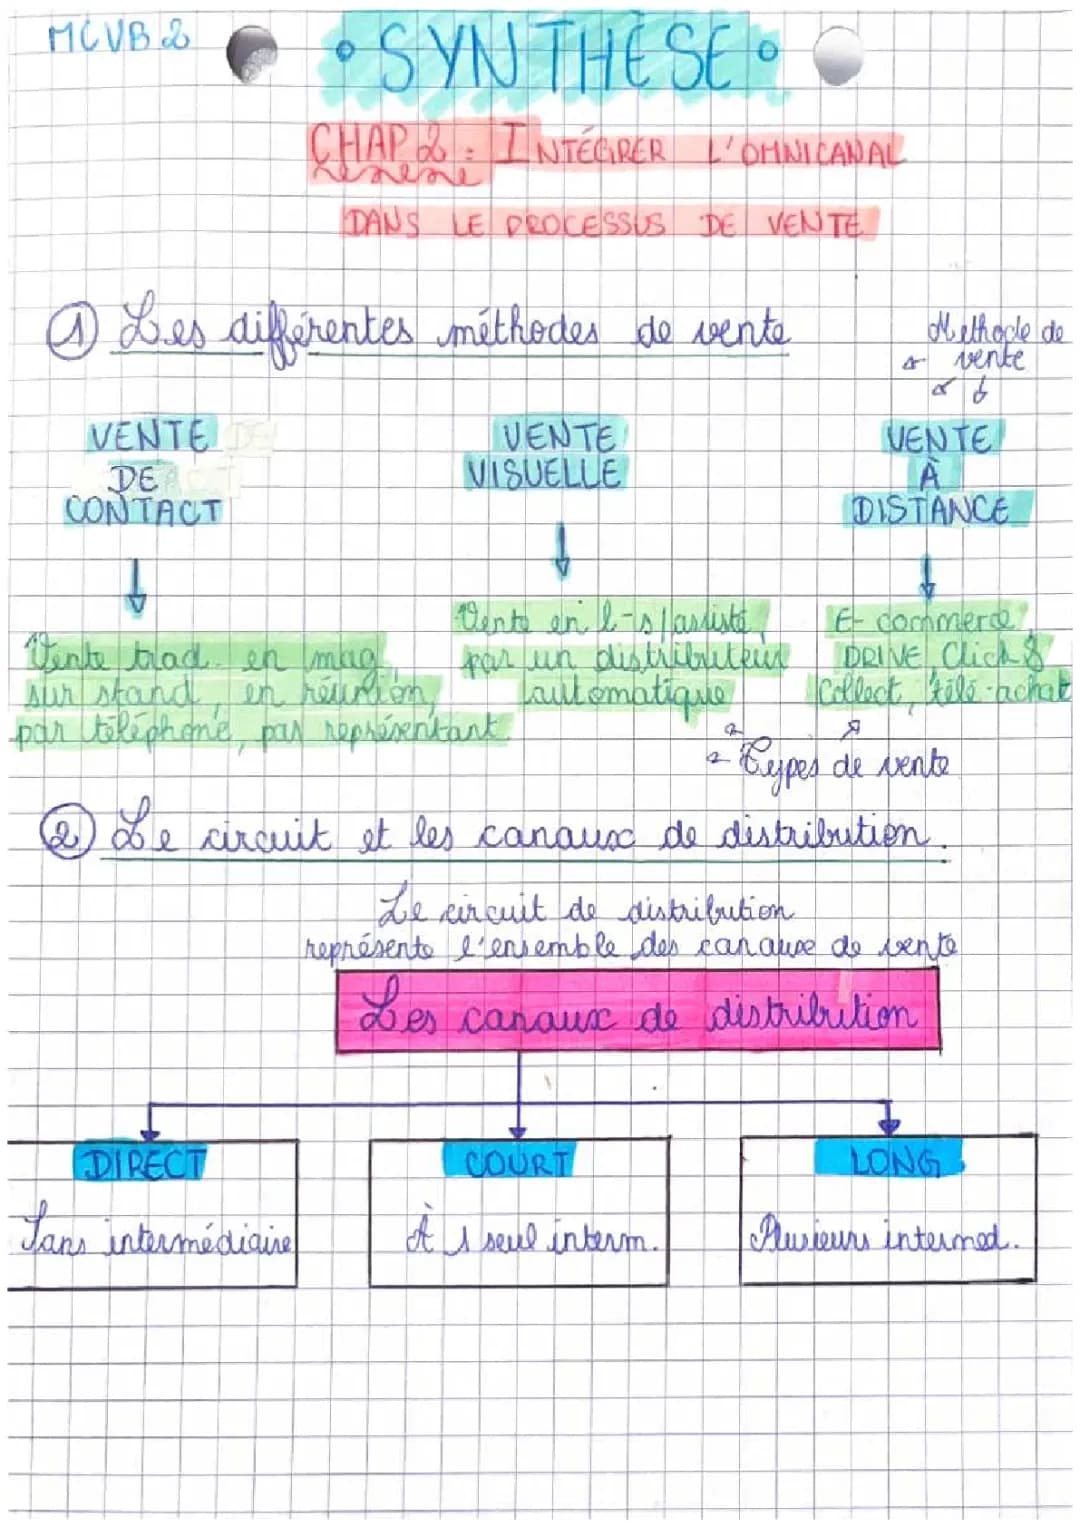 MCVB 2
• SYNTHÈSE •
CHAP 2 : INTÉGRER L'OMNICANAL
DANS LE PROCESSUS DE VENTE
① Les différentes méthodes de vente
Methode de
vente
VENTE
DE
CONTACT
VENTE
VISUELLE
VENTE
À
DISTANCE
Vente trad. en mag,
sur stand, en réunion,
par téléphone, par représentant
Vente en l-s/assisté,
par un distributeur
automatique
E-commerce,
DRIVE, Click &
Collect, télé-achat
Types de vente
② Le circuit et les canaux de distribution.
Le circuit de distribution
représente l'ensemble des canaux de vente
Les canaux de distribution
DIRECT
Sans intermédiaire
COURT
À 1 seul interm.
LONG
Plusieurs intermed.